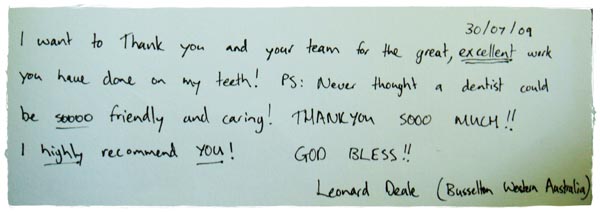 30/07/09
I want to Thank you and your team for the great, excellent work
you have done on my teeth! PS: Never thought a dentist could
be soooo friendly and caring! THANKYOU SOOO MUCH!!
I highly recommend YOU! GOD BLESS!!
Leonard Deale (Busselton Western Australia)